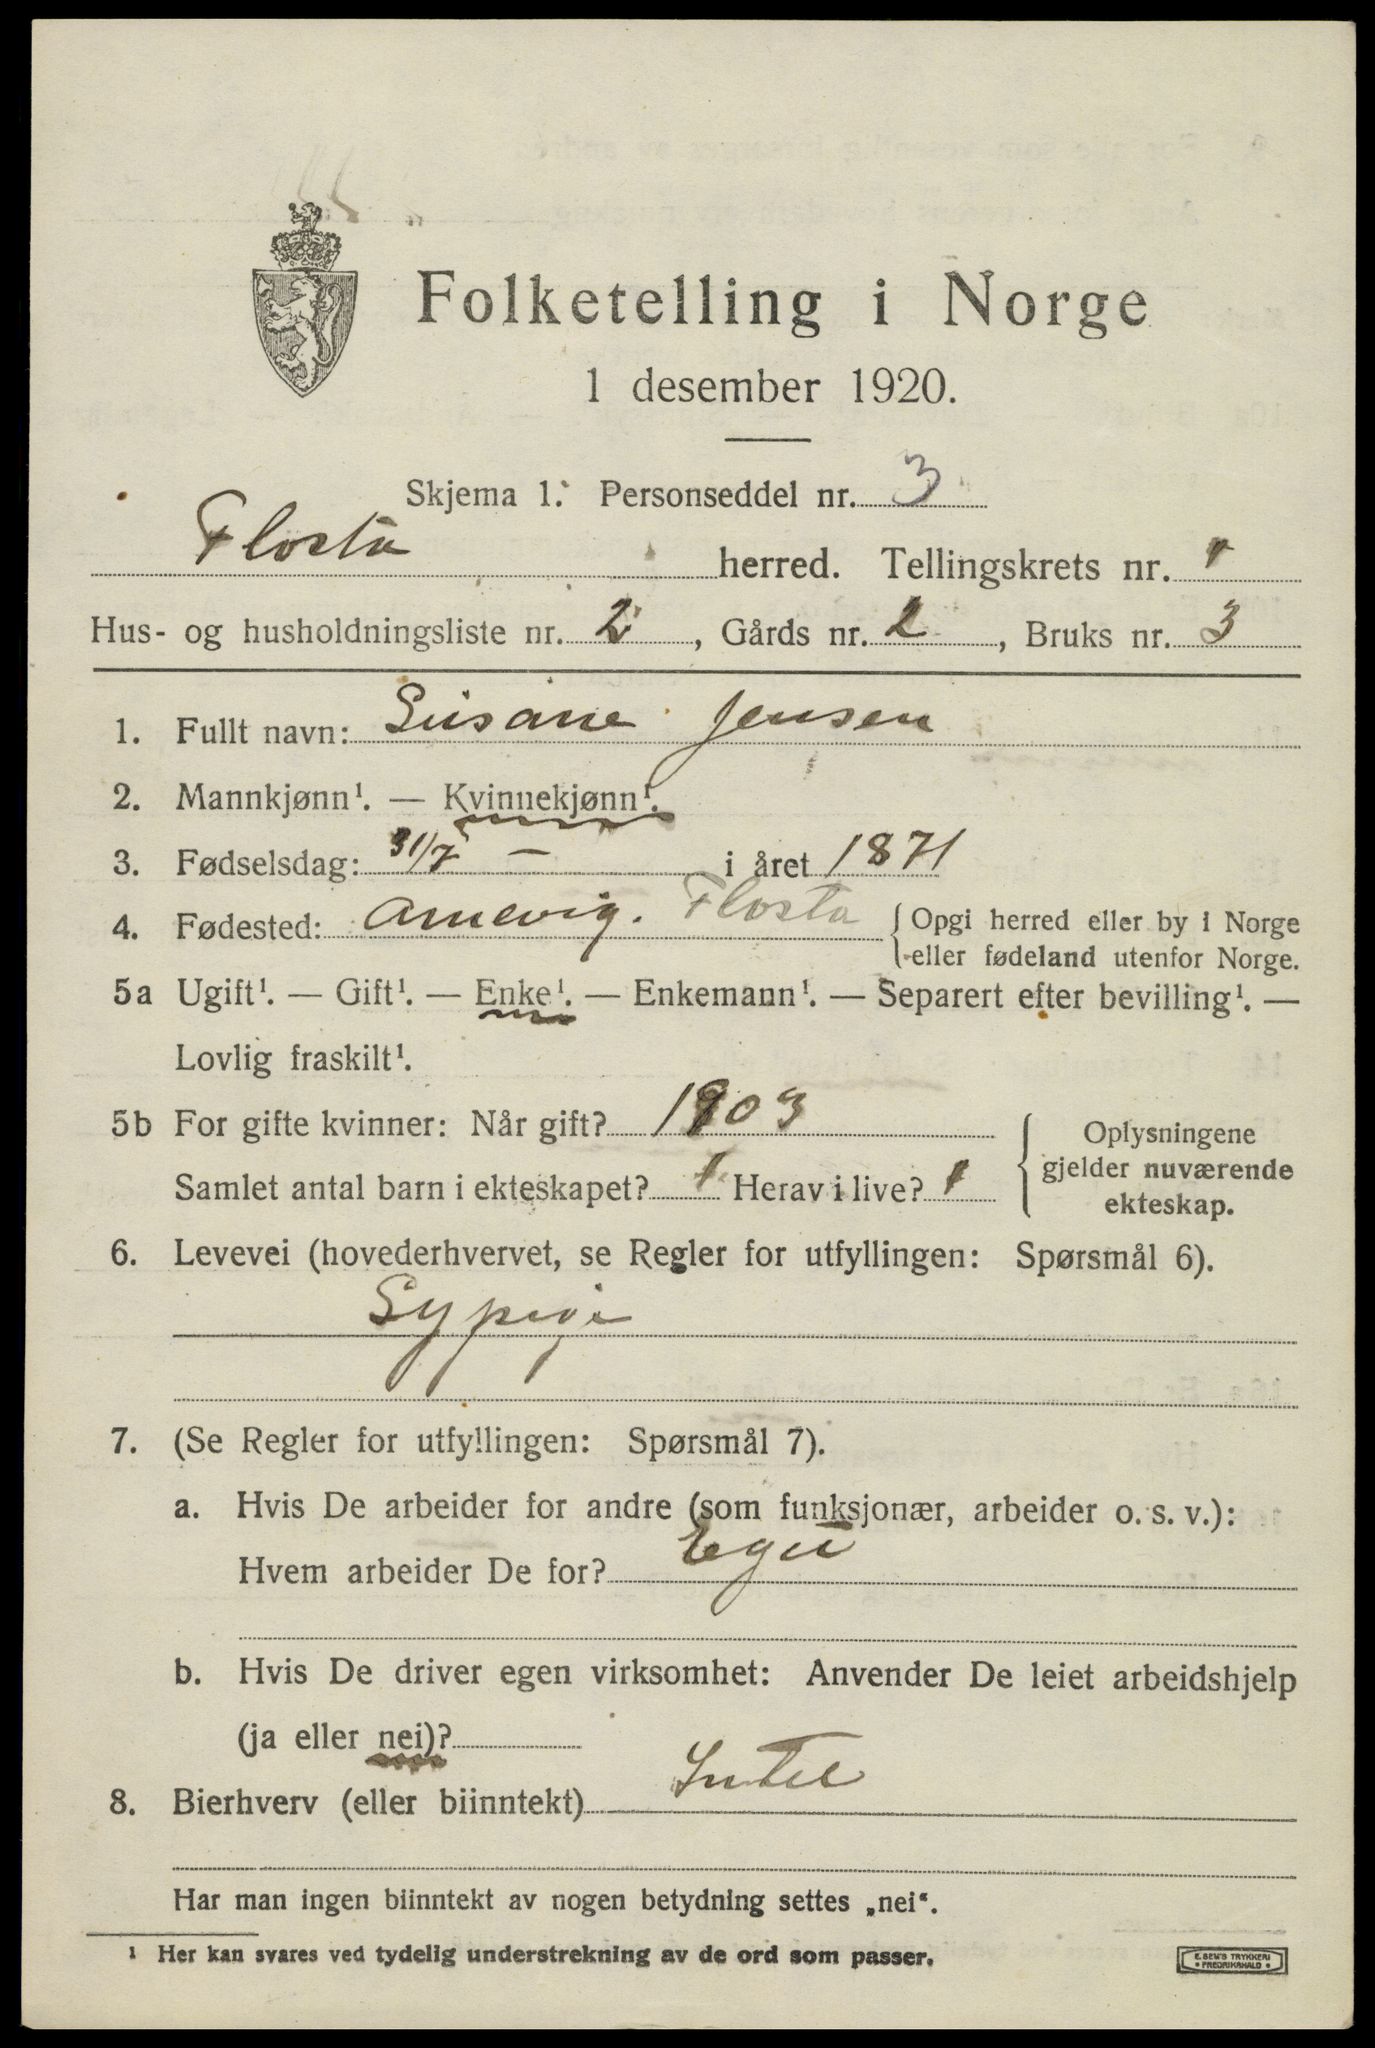 Folketelling i Norge
1 desember 1920.
Skjema 1. Personseddel nr. 3
Flosta herred. Tellingskrets nr. 1
Hus- og husholdningsliste nr. 2, Gårds nr. 2, Bruks nr. 3
1. Fullt navn: Susane Jensen
2. Mannkjønn¹. — Kvinnekjønn¹.
3. Fødselsdag: 31/7 — i året 1871
4. Fødested: Arnevig. Flosta { Opgi herred eller by i Norge
eller fødeland utenfor Norge.
5a Ugift¹. — Gift¹. — Enke¹. — Enkemann¹. — Separert efter bevilling¹. —
Lovlig fraskilt¹.
5b For gifte kvinner: Når gift? 1903
Samlet antal barn i ekteskapet? 1 Herav i live? 1
{ Oplysningene
gjelder nuværende
ekteskap.
6. Levevei (hovederhvervet, se Regler for utfyllingen: Spørsmål 6).
Sypige
7. (Se Regler for utfyllingen: Spørsmål 7).
a. Hvis De arbeider for andre (som funksjonær, arbeider o. s. v.):
Hvem arbeider De for?
b. Hvis De driver egen virksomhet: Anvender De leiet arbeidshjelp
(ja eller nei)?
8. Bierhverv (eller biinntekt) Intet
Har man ingen biinntekt av nogen betydning settes „nei“.
¹ Her kan svares ved tydelig understrekning av de ord som passer.
E. SEM'S TRYKKERI
• FREDRIKSHALD •